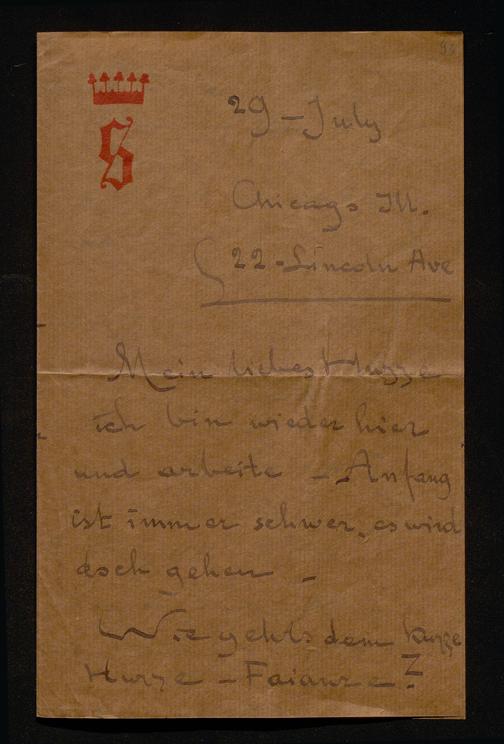 S
29 - July
Chicago Ill.
22 - Lincoln Ave
Mein liebes Hugge
ich bin wieder hier
und arbeite - Anfang
ist immer schwer, es wird
doch gehen -
Wie gehts dem